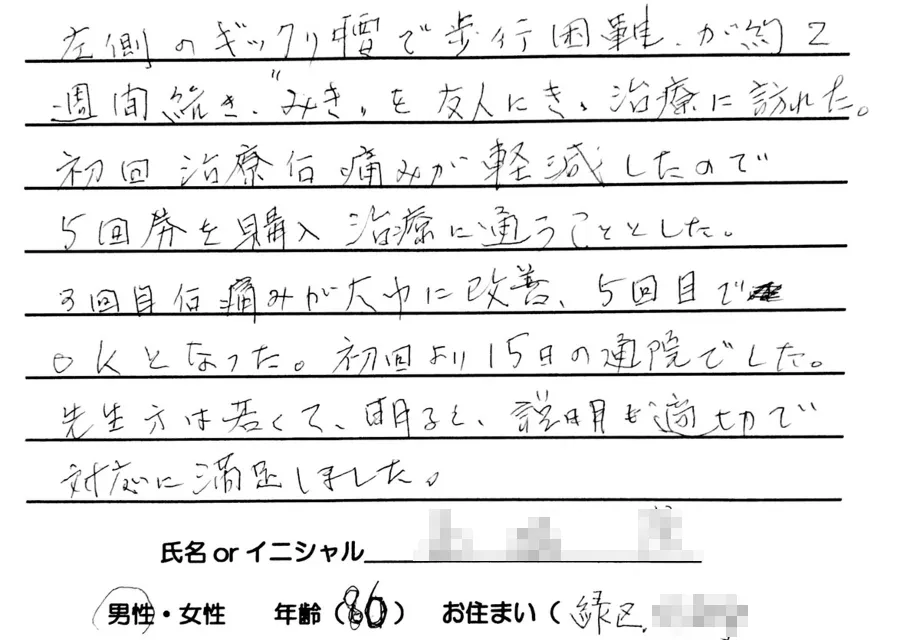 左側のギックリ腰で歩行困難、が約2
週間続き、"みき"を友人にきき治療に訪れた。
初回治療后痛みが軽減したので
5回券を購入治療に通うこととした。
3回目后痛みが大巾に改善、5回目で
OKとなった。初回より15日の通院でした。
先生方は若くて、明るく、説明も適切で
対応に満足しました。
氏名 or イニシャル
男性・女性 年齢(86) お住まい(緑区